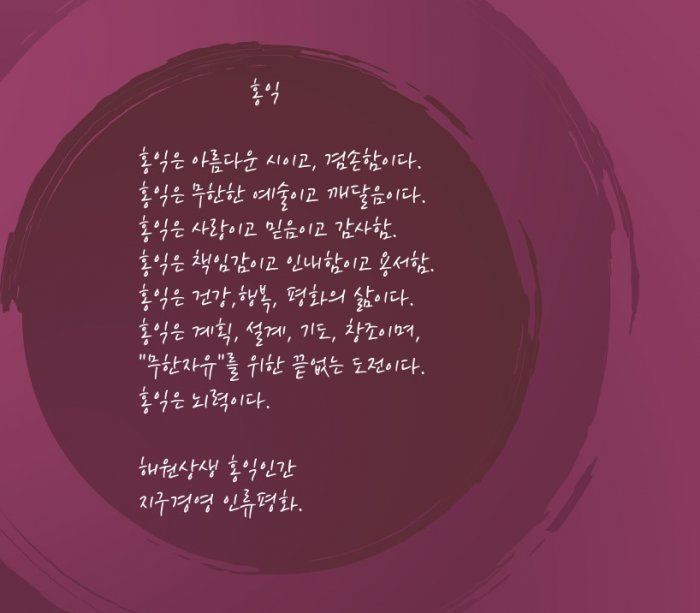 홍익
홍익은 아름다운 시이고, 겸손함이다.
홍익은 무한한 예술이고 깨달음이다.
홍익은 사랑이고 믿음이고 감사함.
홍익은 책임감이고 인내함이고 용서함.
홍익은 건강,행복, 평화의 삶이다.
홍익은 계획, 설계, 기도, 창조이며,
"무한자유"를 위한 끝없는 도전이다.
홍익은 뇌력이다.
해원상생 홍익인간
지구경영 인류평화.